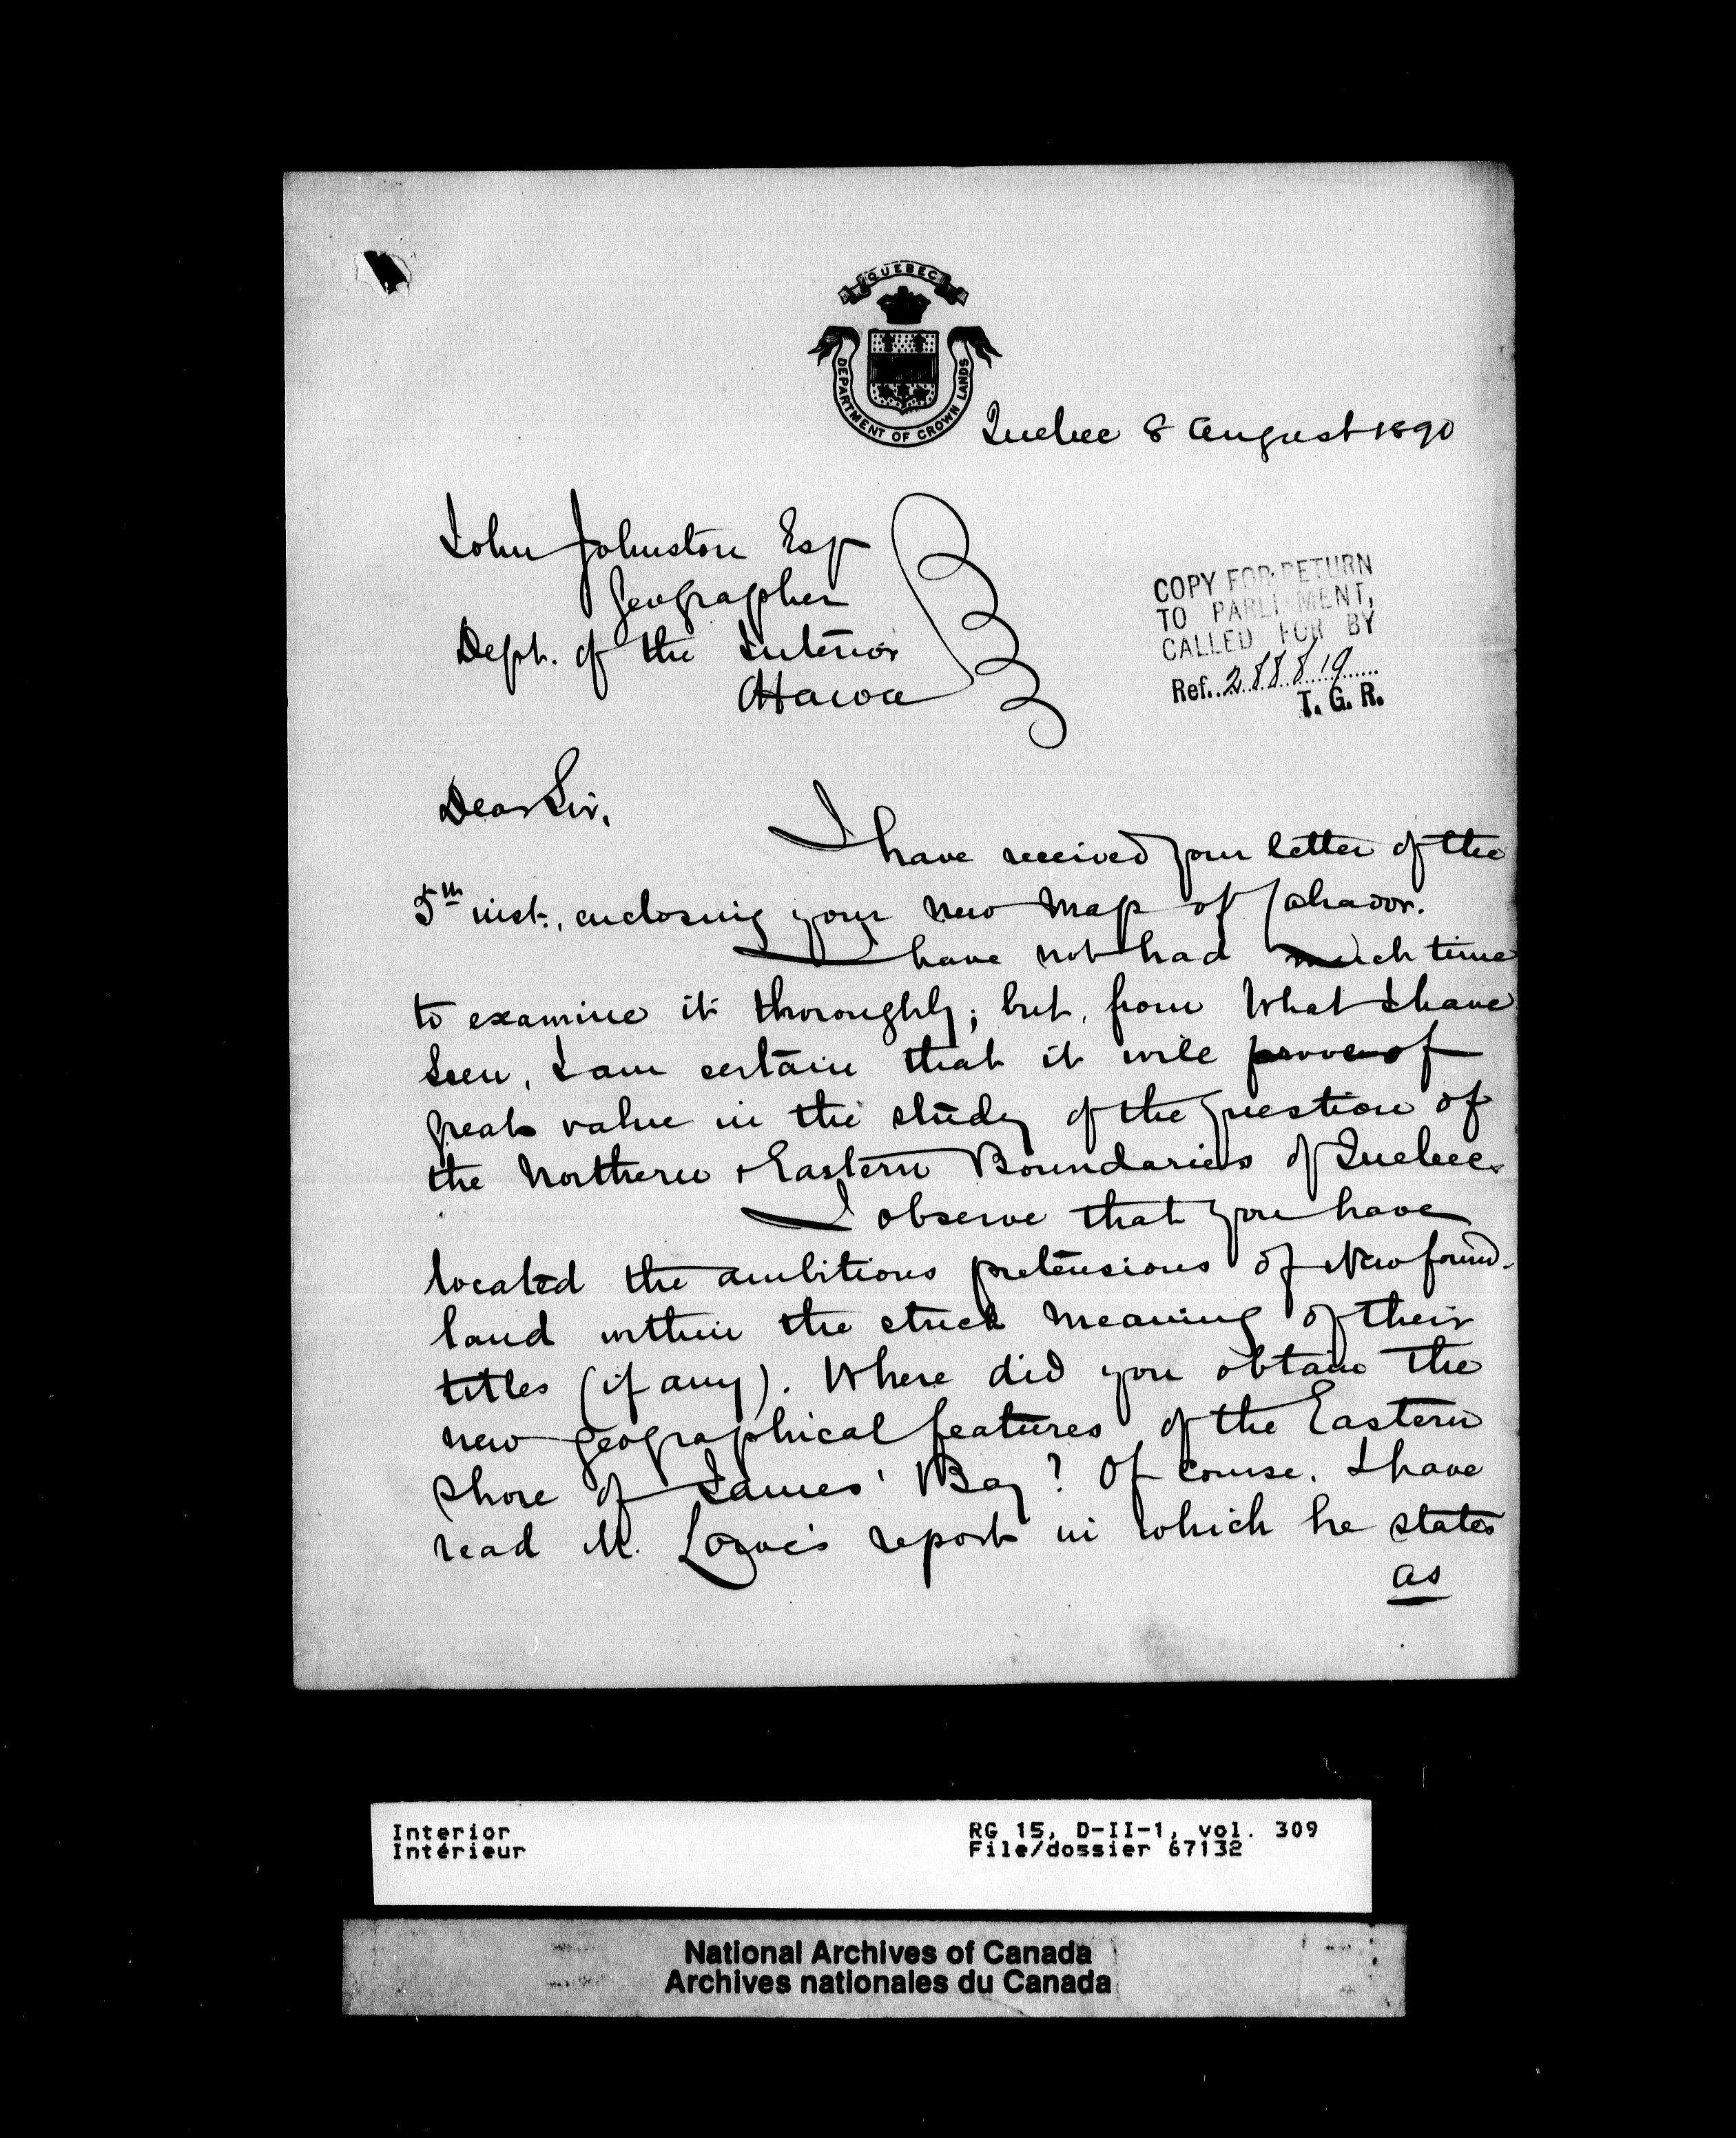 QUEBEC
DEPARTMENT OF CROWN LANDS
Quebec 8 August 1890
John Johnston Esq
Geographer
Dept. of the Interior
Ottawa
COPY FOR RETURN
TO PARLIAMENT,
CALLED FOR BY
Ref. 288819
T. G. R.
Dear Sir,
I have received your letter of the
5th inst., enclosing your new map of Labrador.
I have not had much time
to examine it thoroughly; but, from what I have
seen, I am certain that it will prove of
great value in the study of the question of
the Northern & Eastern Boundaries of Quebec.
I observe that you have
located the ambitious pretensions of Newfound-
land within the strict meaning of their
titles (if any). Where did you obtain the
new geographical features of the Eastern
shore of James' Bay? Of course, I have
read M. Low's report in which he states
as
Interior
Intérieur
RG 15, D-II-1, vol. 309
File/dossier 67132
National Archives of Canada
Archives nationales du Canada